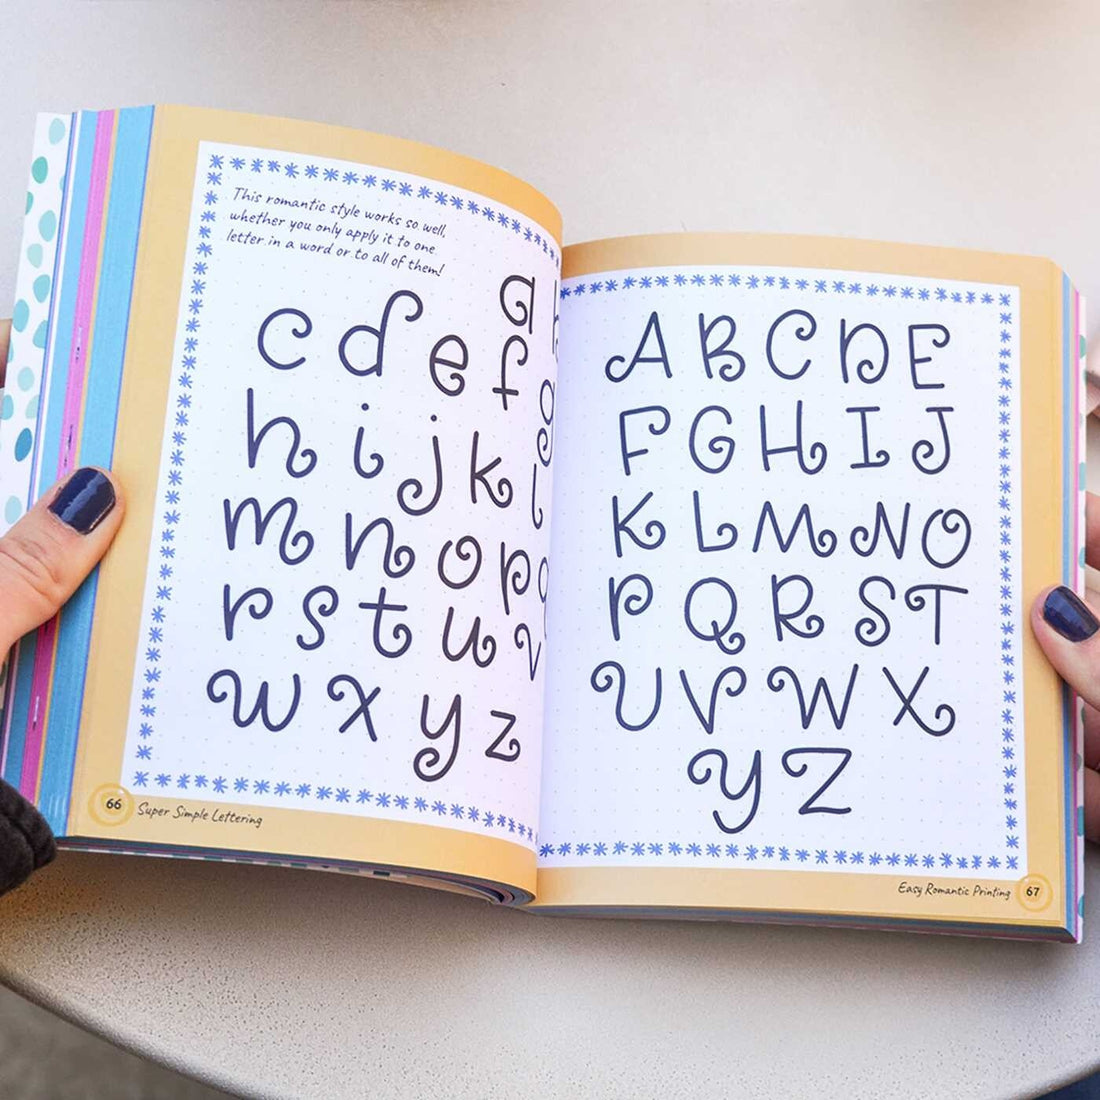 This romantic style works so well,
whether you only apply it to one
letter in a word or to all of them!
a
c d e f g
h i j k l
m n o p
r s t u v
w x y z
66 Super Simple Lettering
A B C D E
F G H I J
K L M N O
P Q R S T
U V W X
Y Z
Easy Romantic Printing 67